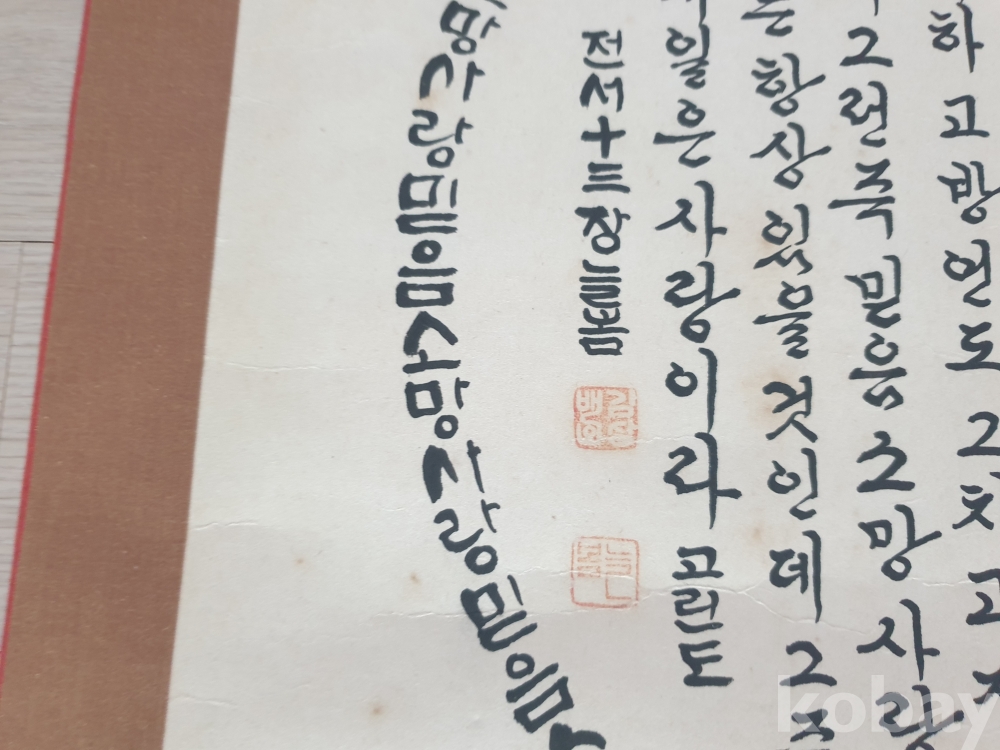 하고방언도그치고
그런즉믿음소망사랑
는항상있을것인데그
일은사랑이라 고린도
전서十三장
망사랑믿음소망사랑믿음
kobay